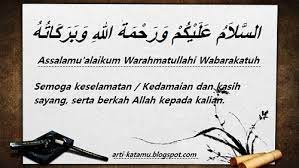 السَّلَامُ عَلَيْكُمْ وَرَحْمَةُ اللهِ وَبَرَكَاتُهُ
Assalamu'alaikum Warahmatullahi Wabarakatuh
Semoga keselamatan / Kedamaian dan kasih
sayang, serta berkah Allah kepada kalian.
arti-katamu.blogspot.com